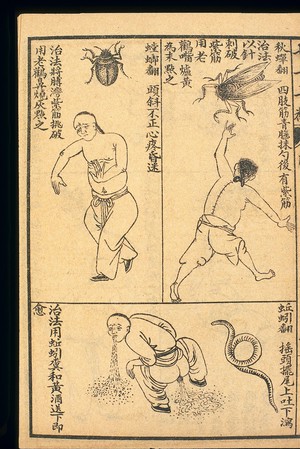 秋蟬翻 四肢筋青腿抹勺後有紫筋
治法
以針
刺破
紫筋
用老
鸛嘴爐黃
為末點之
螳螂翻 頭斜不正心疼昏迷
治法將膀灣紫筋挑破
用老鸛鼻燒灰點之
蚯蚓翻 搖頭擺尾上吐下瀉
治法用蚯蚓糞和黃酒送下即
愈